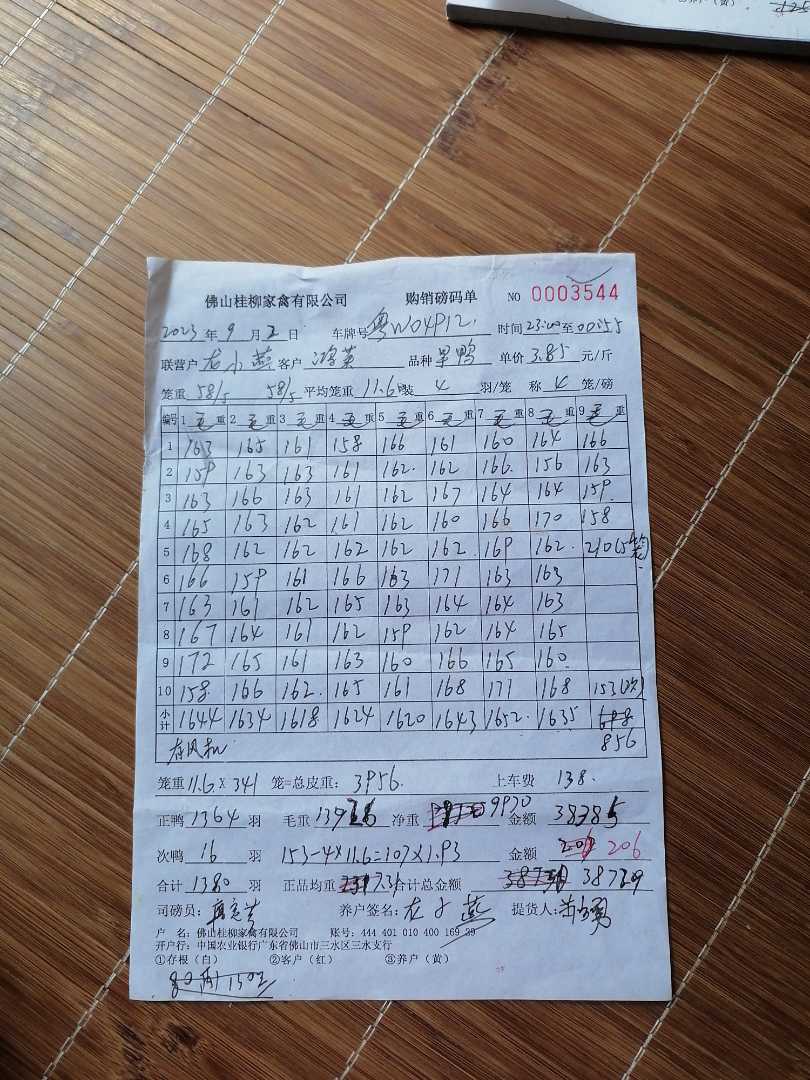 佛山桂柳家禽有限公司 购销磅码单 NO 0003544
2023年9月2日 车牌号 粤W04P12. 时间23:00至00:55
联营户 左小燕 客户 鸿英 品种 旱鸭 单价 3.85 元/斤
笼重 58/5 58/5 平均笼重 11.6 装 4 羽/笼 称 4 笼/磅
编号 1毛重 2毛重 3毛重 4毛重 5毛重 6毛重 7毛重 8毛重 9毛重
1 163 165 161 158 166 161 160 164 166
2 159 163 163 161 162. 162 166. 156 163
3 163 166 163 161 162 167 164 164 159.
4 165 163 162 161 162 160 166 170 158
5 168 162 162 162 162 162. 169 162. 210(5笼)
6 166 159 161 166 163 171 163 163
7 163 161 162 165 163 164 164 163
8 167 164 161 162 159 162 164 165
9 172 165 161 163 160 166 165 160.
10 158. 166 162. 165 161 168 171 168 153(次)
小计 1644 1634 1618 1624 1620 1643 1652. 1635 698
856
笼重 11.6 X 341 笼=总皮重: 3956. 上车费 138.
正鸭 1364 羽 毛重 净重 9970 金额 38385
次鸭 16 羽 153-4×11.6=107×1.93 金额 206
合计 1380 羽 正品均重 7.31 合计总金额 38729
司磅员: 养户签名: 左小燕 提货人:
户 名: 佛山桂柳家禽有限公司 账号: 444 401 010 400 169 29
开户行: 中国农业银行广东省佛山市三水区三水支行
①存根(白) ②客户(红) ③养户(黄)